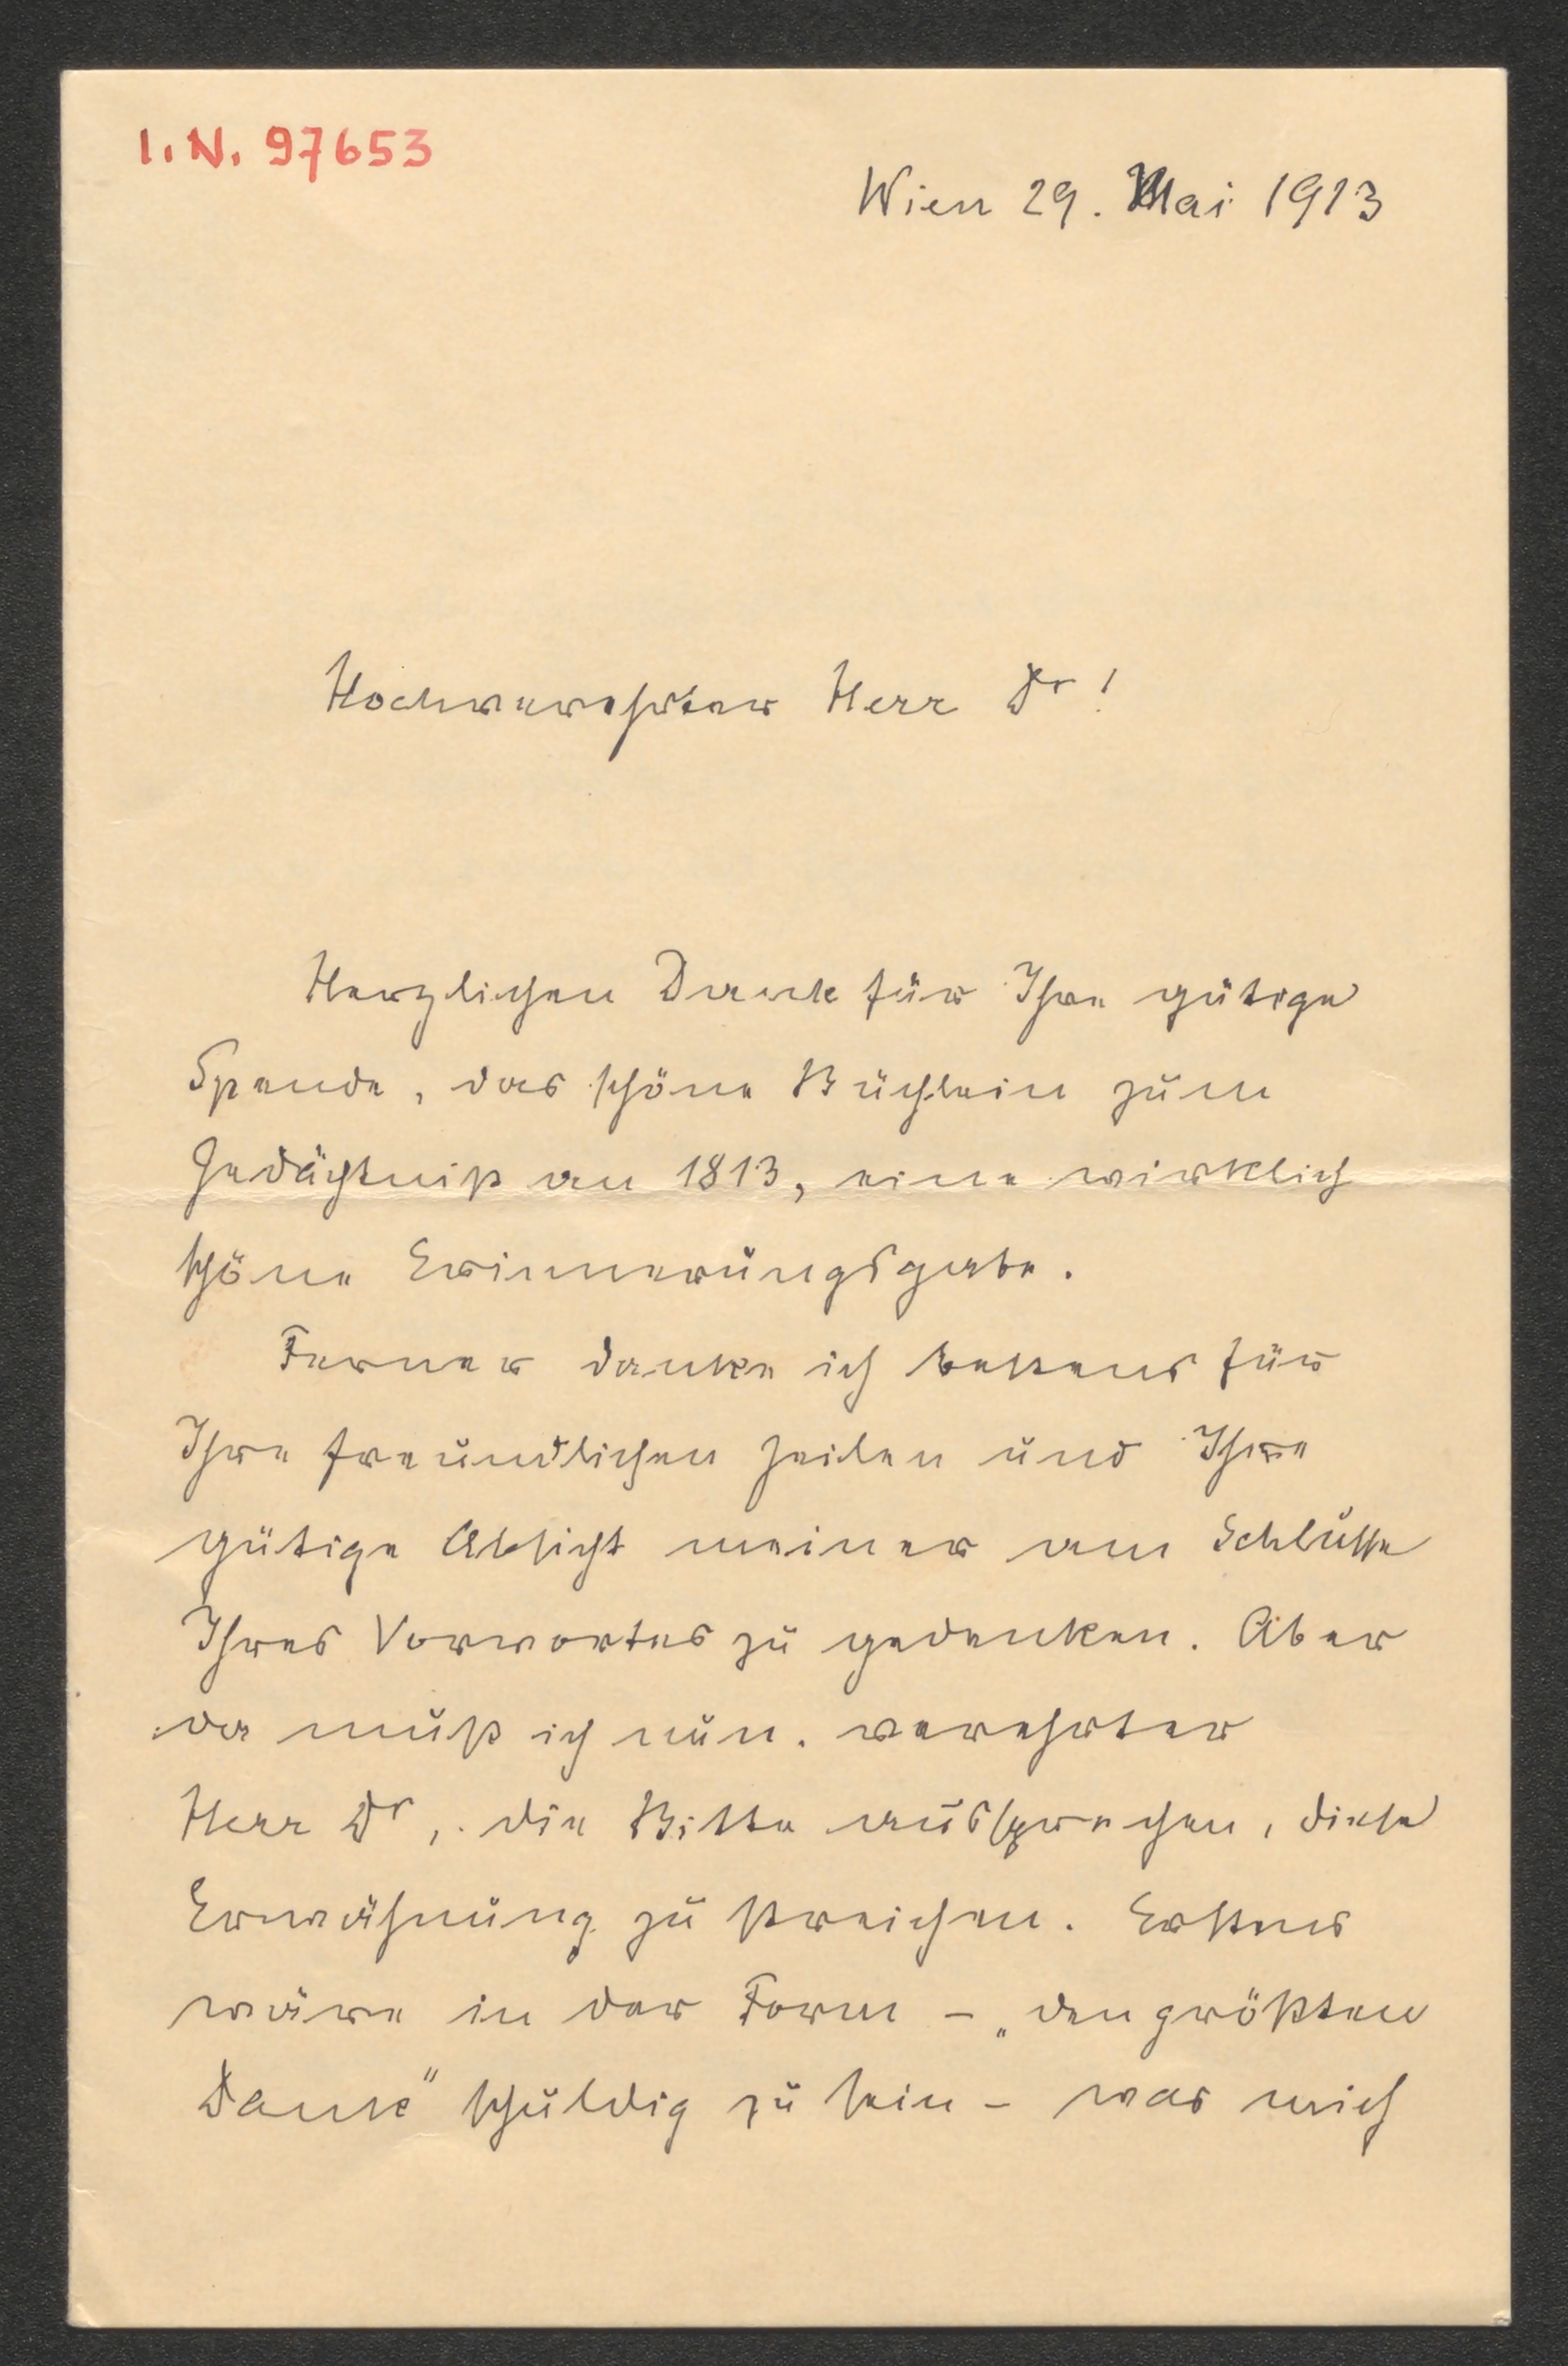 I.N. 97653
Wien 29. Mai 1913
Hochverehrter Herr Dr!
Herzlichen Dank für Ihre gütige
Spende, das schöne Büchlein zum
Gedächtniß an 1813, eine wirklich
schöne Erinnerungsgabe.
Ferner danke ich bestens für
Ihre freundlichen Zeilen und Ihre
gütige Absicht meiner am Schlusse
Ihres Vorwortes zu gedenken. Aber
da muß ich nun. verehrter
Herr Dr, die Bitte aussprechen, diese
Erwähnung zu streichen. Erstens
wäre in der Form – „den größten
Dank" schuldig zu sein – was mich